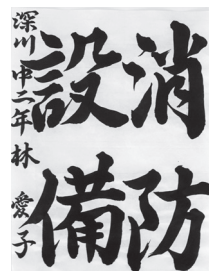 消防
設備
深川中二年林愛子